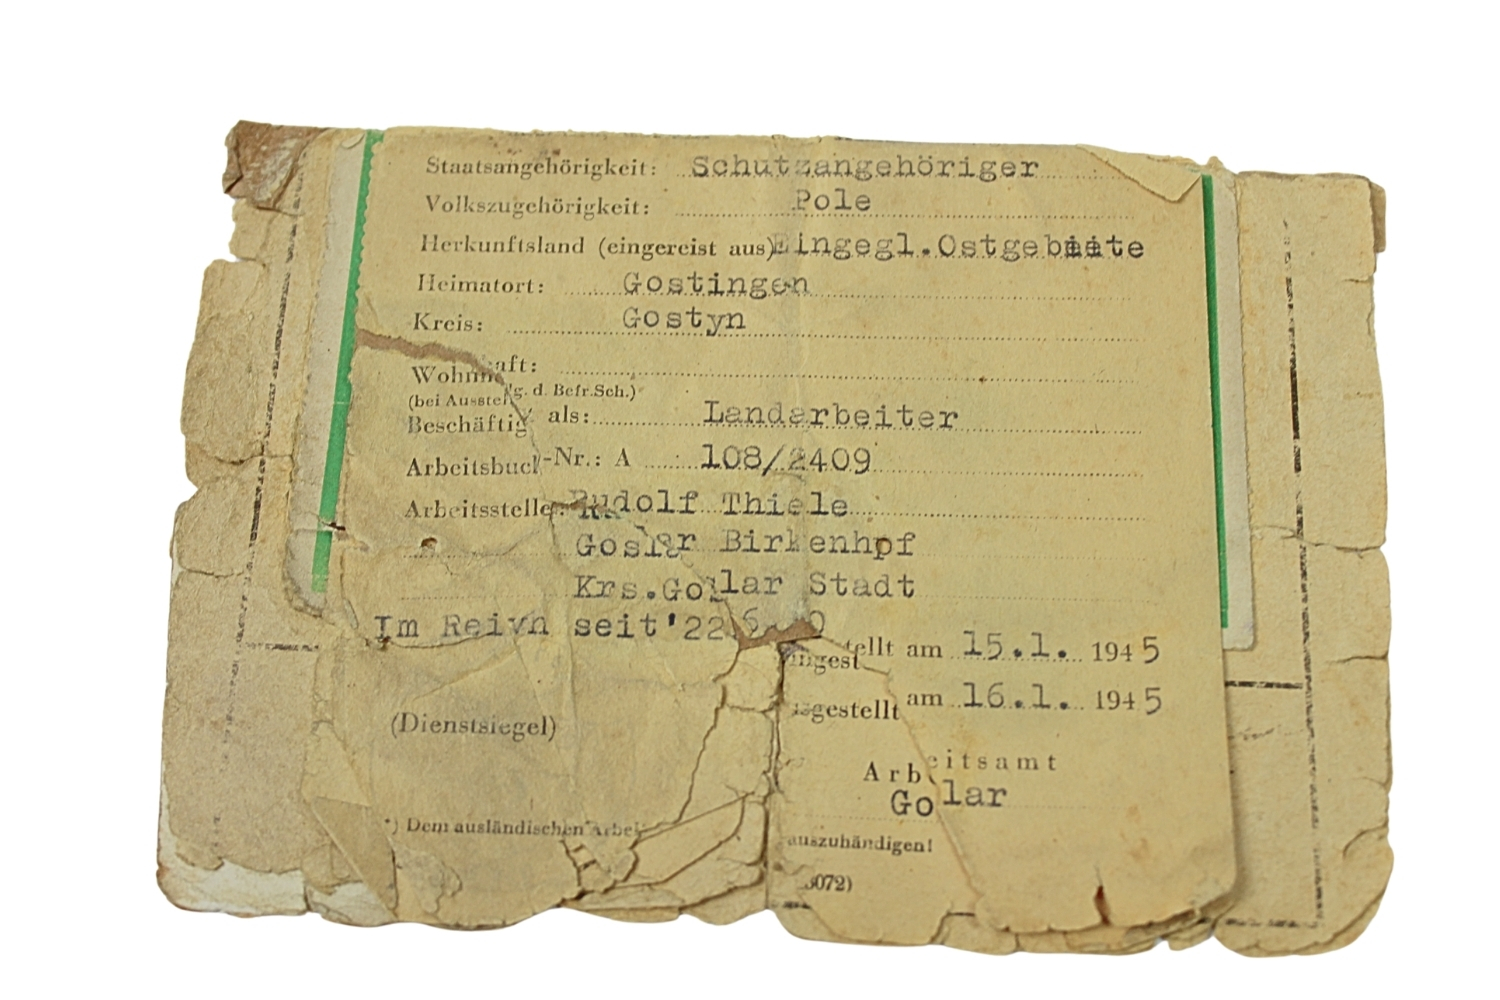 Staatsangehörigkeit: Schutzangehöriger
Volkszugehörigkeit: Pole
Herkunftsland (eingereist aus) Eingegl.Ostgebiete
Heimatort: Gostingen
Kreis: Gostyn
Wohnhaft:
(bei Ausstellg. d. Befr.Sch.)
Beschäftigt als: Landarbeiter
Arbeitsbuch-Nr.: A 108/2409
Arbeitsstelle: Rudolf Thiele
Goslar Birkenhof
Krs.Goslar Stadt
Im Reivh seit'22
Eingestellt am 15.1. 1945
Ausgestellt am 16.1. 1945
(Dienstsiegel)
Arbeitsamt
Goslar
*) Dem ausländischen Arbei auszuhändigen!
3072)